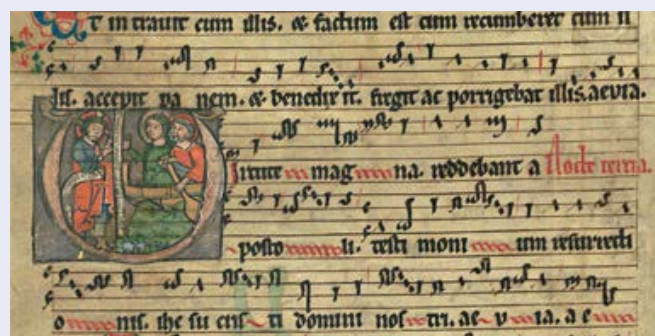 T intrauit cum illis. & factum est cum recumberet cum il
lis. accepit pa nem. & benedix it. fregit ac porrigebat illis. aevia.
Virtute mag na. reddebant a Nocte tertia.
posto li. testi moni um resurrecti
o nis. ihe su cris ti domini nos tri. ae v ia. a e